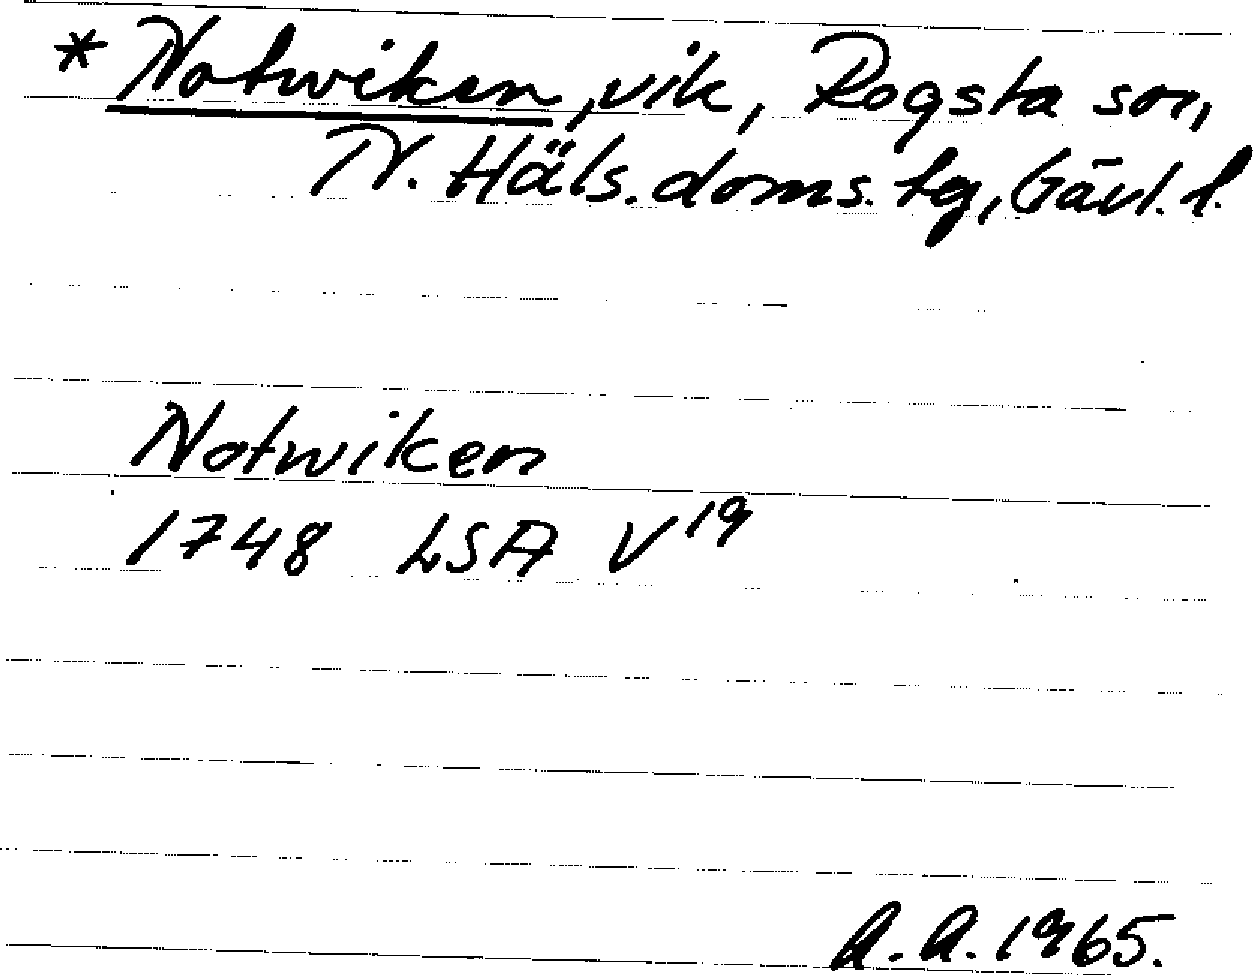 * Notwiken, vik, Rogsta sn,
N. Häls. doms. tg, Gävl. l.
Notwiken
1748 LSA V19
A.A. 1965.